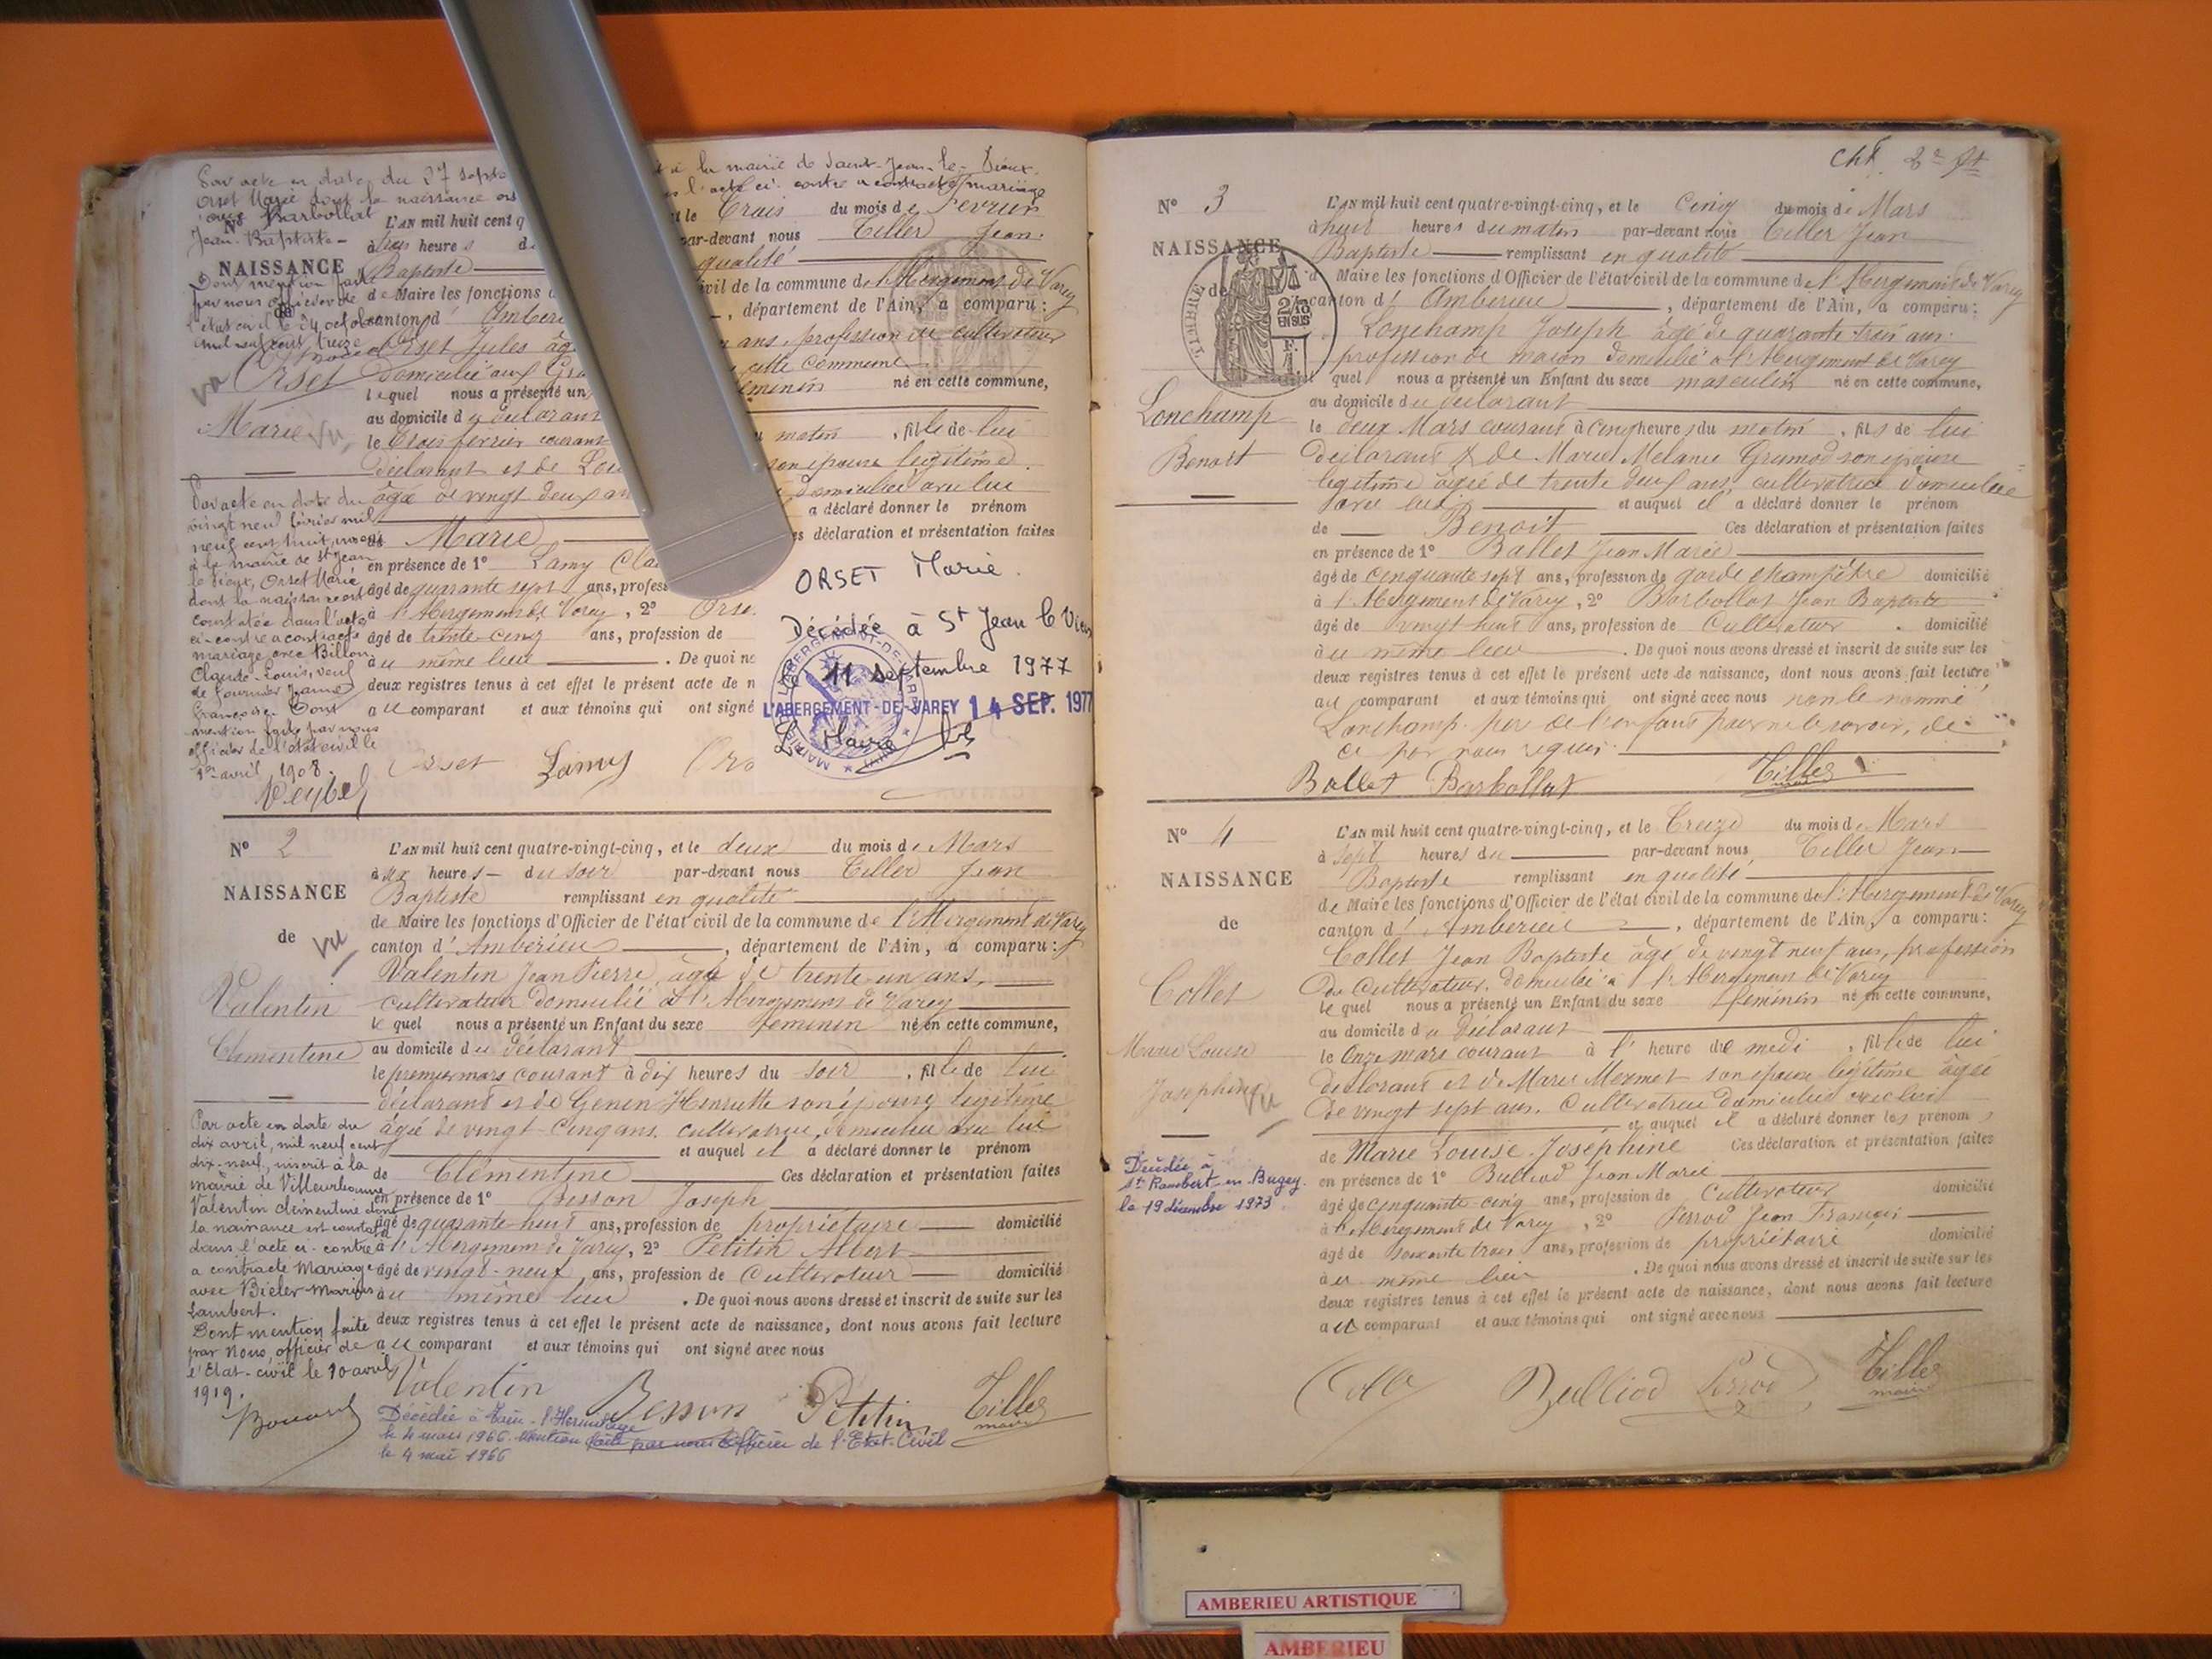 Par acte en date du 27 sept
Orset Marie dont la naissance
avec Barbollat
Jean-Baptiste -
à la mairie de Saint-Jean-le-Vieux.
l'acte ci-contre a contracté mariage
NAISSANCE
Dont mention faite
par nous officier de
l'état civil le 24 octobre
mil neuf cent treize
Orset
Marie
vu
L'AN mil huit cent q
le Trois du mois de Fevrier
heures d
par-devant nous Tiller Jean
Baptiste
qualité
de Maire les fonctions
civil de la commune de l'Abergement de Varey
canton d'Amberi
, département de l'Ain, a comparu:
Orset Jules âg
ans, profession de cultivateur
domicilié aux
cette commune
lequel nous a présenté un
feminin né en cette commune,
au domicile du déclarant
le trois fevrier courant
matin , fille de lui
déclarant et de Lou
son épouse légitime
âgée de vingt deux an
domiciliée avec lui
a déclaré donner le prénom
de Marie
s déclaration et présentation faites
en présence de 1° Lamy Cla
âgé de quarante sept ans, profess
à l'Abergement de Varey, 2° Orse
âgé de trente-cinq ans, profession de
au même lieu . De quoi no
deux registres tenus à cet effet le présent acte de n
au comparant et aux témoins qui ont signé
Orset Lamy Ors
Par acte en date du
vingt neuf février mil
neuf cent huit, inscrit
à la mairie de St Jean
le Vieux, Orset Marie
dont la naissance est
constatée dans l'acte
ci-contre a contracté
mariage avec Billon
Claude-Louis, veuf
de Fournier Jeanne
Françoise. Dont
mention faite par nous
officier de l'état civil le
1er avril 1908.
ORSET Marie.
Décédée à St Jean le Vieux
le 11 septembre 1977
L'ABERGEMENT-DE-VAREY 14 SEP. 1977
Le Maire
N° 2
NAISSANCE
de
vu
Valentin
Clementine
L'AN mil huit cent quatre-vingt-cinq, et le deux du mois de Mars
à six heures du soir par-devant nous Tiller Jean
Baptiste remplissant en qualité
de Maire les fonctions d'Officier de l'état civil de la commune de l'Abergement de Varey
canton d'Amberieu , département de l'Ain, a comparu:
Valentin Jean Pierre, âgé de trente-un ans,
cultivateur domicilié à l'Abergement de Varey
le quel nous a présenté un Enfant du sexe feminin né en cette commune,
au domicile du déclarant
le premier mars courant à dix heures du soir , fille de lui
déclarant et de Genin Henriette son épouse légitime
âgée de vingt-cinq ans, cultivatrice, domiciliée avec lui
et auquel il a déclaré donner le prénom
de Clémentine Ces déclaration et présentation faites
en présence de 1° Besson Joseph
âgé de quarante-huit ans, profession de propriétaire domicilié
à l'Abergement de Varey, 2° Petitin Albert
âgé de vingt-neuf ans, profession de Cultivateur domicilié
au même lieu . De quoi nous avons dressé et inscrit de suite sur les
deux registres tenus à cet effet le présent acte de naissance, dont nous avons fait lecture
au comparant et aux témoins qui ont signé avec nous
Valentin Besson Petitin Tiller
maire
Par acte en date du
dix avril, mil neuf cent
dix-neuf, inscrit à la
mairie de Villeurbanne
Valentin clémentine dont
la naissance est constatée
dans l'acte ci-contre
a contracté Mariage
avec Bieler Marius
Lambert.
Dont mention faite
par Nous, officier de
l'Etat-civil le 10 avril
1919.
Décédée à Tain-l'Hermitage
le 4 mars 1966. Mention faite par nous Officier de l'Etat-Civil
le 4 mai 1966
N° 3
NAISSANCE
de
TIMBRE
2/10
EN SUS
F.
Lonchamp
Benoit
L'AN mil huit cent quatre-vingt-cinq, et le Cinq du mois de Mars
à huit heures du matin par-devant nous Tiller Jean
Baptiste remplissant en qualité
de Maire les fonctions d'Officier de l'état civil de la commune de l'Abergement de Varey
canton d'Amberieu , département de l'Ain, a comparu:
Lonchamp Joseph âgé de quarante-trois ans
profession de maçon domicilié à l'Abergement de Varey
quel nous a présenté un Enfant du sexe masculin né en cette commune,
au domicile du déclarant
le deux Mars courant à cinq heures du matin , fils de lui
déclarant & de Marie Melanie Grumod son épouse
légitime âgée de trente deux ans, cultivatrice domiciliée
avec lui et auquel il a déclaré donner le prénom
de Benoit Ces déclaration et présentation faites
en présence de 1° Ballet Jean Marie
âgé de cinquante sept ans, profession de garde champêtre domicilié
à l'Abergement de Varey, 2° Barbollat Jean Baptiste
âgé de vingt huit ans, profession de Cultivateur . domicilié
au même lieu . De quoi nous avons dressé et inscrit de suite sur les
deux registres tenus à cet effet le présent acte de naissance, dont nous avons fait lecture
au comparant et aux témoins qui ont signé avec nous non le nommé
Lonchamp père de l'enfant pour ne le savoir, de
ce par nous requis.
Ballet Barbollat Tiller
maire
N° 4
NAISSANCE
de
Collet
Marie Louise
Josephine
vu
Décédée à
St Rambert-en-Bugey.
le 19 décembre 1973
L'AN mil huit cent quatre-vingt-cinq, et le Treize du mois de Mars
à sept heures du par-devant nous Tiller Jean
Baptiste remplissant en qualité
de Maire les fonctions d'Officier de l'état civil de la commune de l'Abergement de Varey
canton d'Amberieu , département de l'Ain, a comparu:
Collet Jean Baptiste âgé de vingt neuf ans, profession
de Cultivateur, domicilié à l'Abergement de Varey
le quel nous a présenté un Enfant du sexe feminin né en cette commune,
au domicile du déclarant
le Onze mars courant à l'heure de midi , fille de lui
déclarant et de Marie Mermet son épouse légitime âgée
de vingt sept ans, Cultivatrice domiciliée avec lui
et auquel il a déclaré donner les prénoms
de Marie Louise Joséphine Ces déclaration et présentation faites
en présence de 1° Bulliod Jean Marie
âgé de cinquante cinq ans, profession de Cultivateur domicilié
à l'Abergement de Varey, 2° Perrod Jean François
âgé de soixante trois ans, profession de propriétaire domicilié
au même lieu . De quoi nous avons dressé et inscrit de suite sur les
deux registres tenus à cet effet le présent acte de naissance, dont nous avons fait lecture
au comparant et aux témoins qui ont signé avec nous
Bulliod Perrod Tiller
maire
AMBERIEU ARTISTIQUE
AMBERIEU